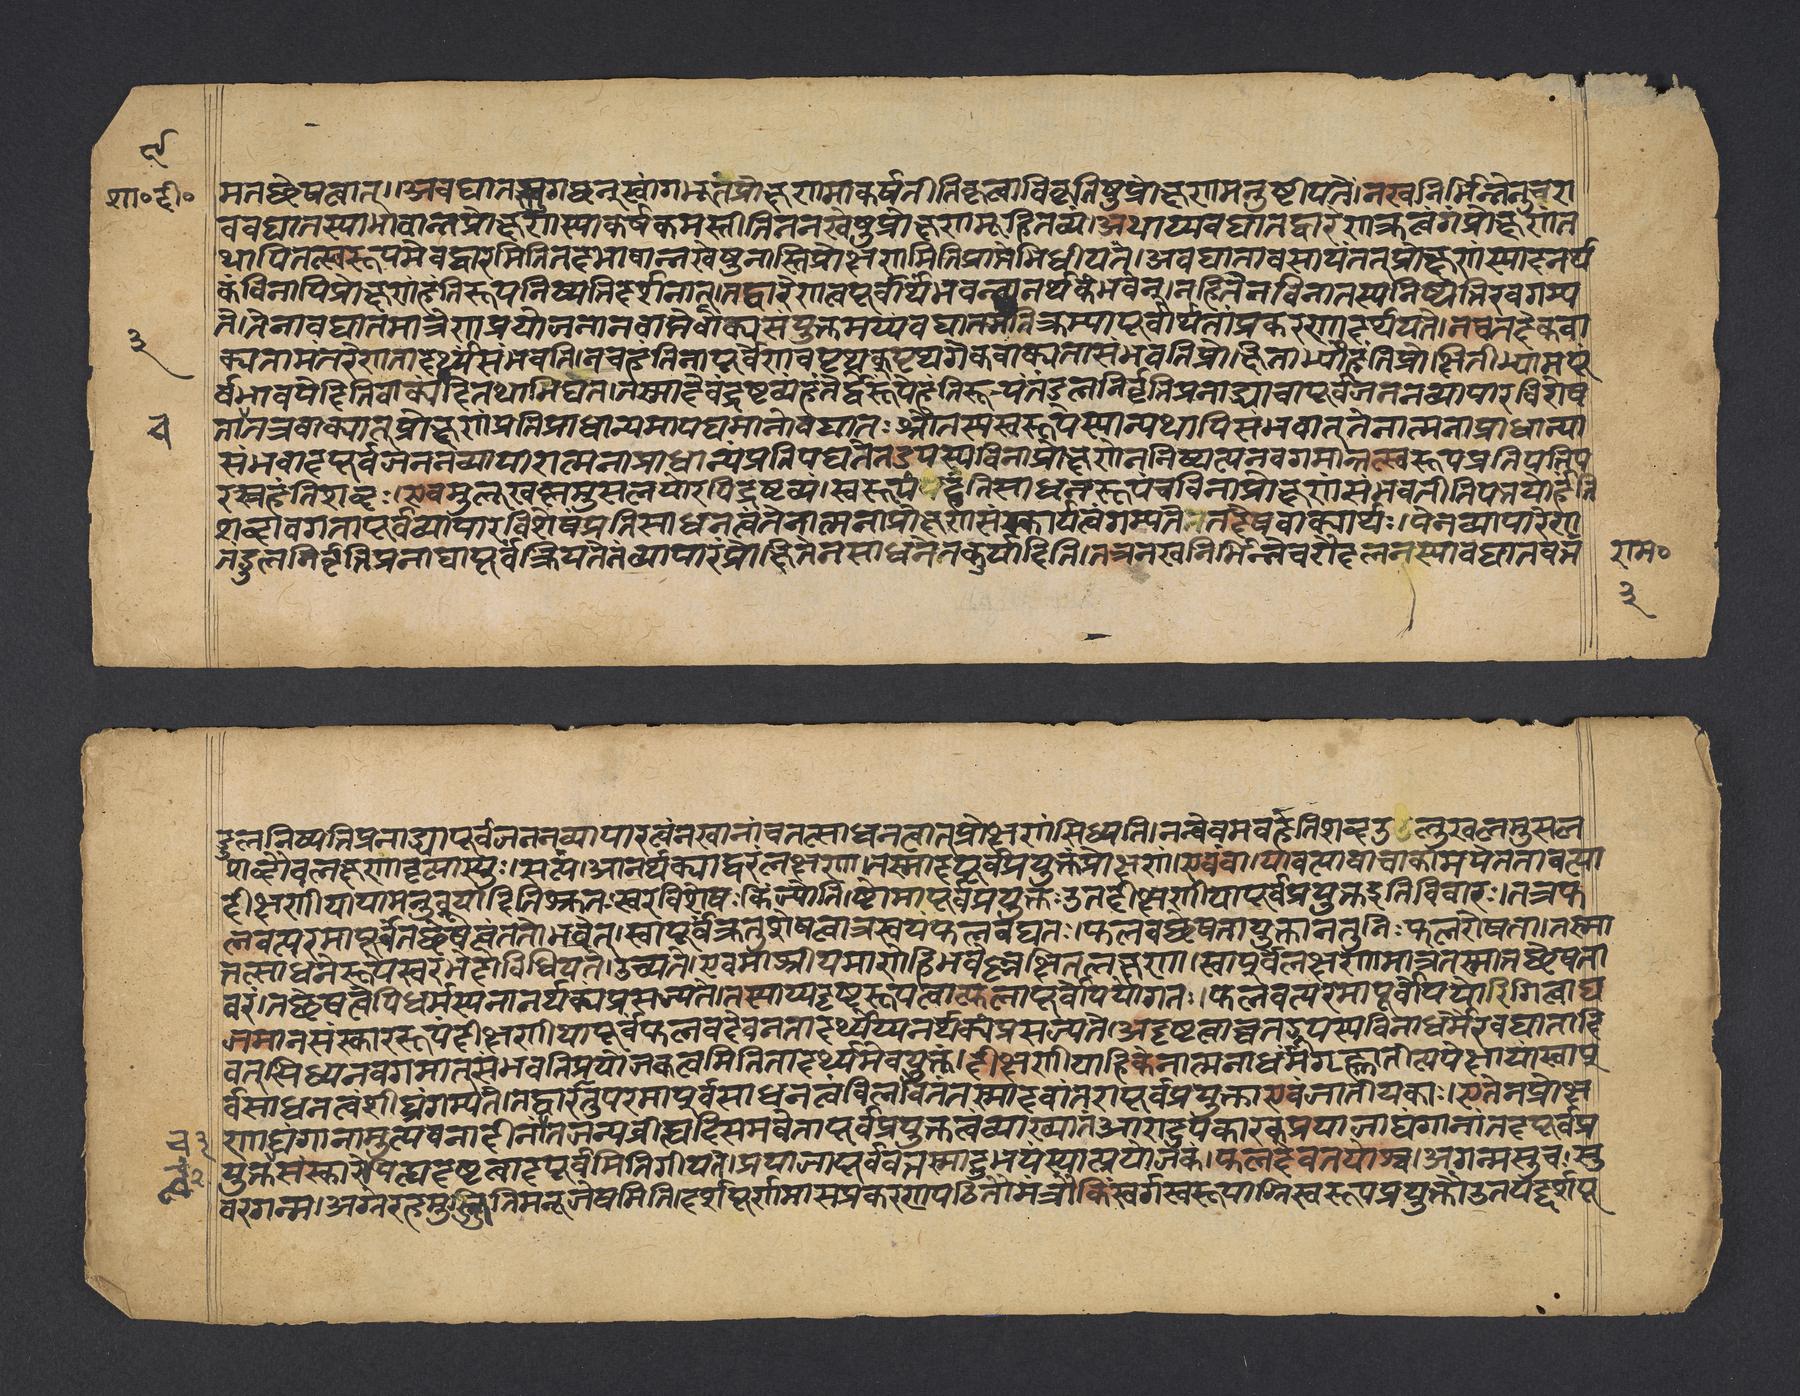 ९
शा॰दी॰
मतच्छेषत्वात्।।अवघातस्तुगछन्स्वांगभूतंप्रोक्षणमाकर्षतीतिकृत्वाविकृतिषुप्रोक्षणमनुष्टीयते।नखनिर्भिन्नेतुचरा
ववघातस्याभावान्नप्रोक्षणस्याकर्षकमस्तीतिननखेषुप्रोक्षणमूहितव्यं।अथाप्यवघातद्वारेणक्रत्वंगंप्रोक्षणंत
थापितत्स्वरूपमेवद्वारमितितदभावान्नखेषुनास्तिप्रोक्षणमितिप्राप्तेभिधीयते।अवघातावसायंतत्प्रोक्षणंस्यादनर्थ
कंविनापिप्रोक्षणंहंतिरूपनिष्पत्तिदर्शनात्।तद्वारेणत्वपूर्वार्थंभवन्नानर्थकंभवेत्।नहितेनविनातस्यनिष्पत्तिरवगम्य
ते।तेनावघातमात्रेणप्रयोजनानवाप्तेर्वाक्यसंयुक्तमप्यवघातमतिक्रम्यापूर्वार्थताप्रकरणादर्थ्यते।नचतदेकवा
क्यतामंतरेणतादर्थ्यसंभवति।नचहंतिनापूर्वेणचपृथक्पृथगेकवाक्यतासंभवतिप्रोक्षिताभ्यांहंतिप्रोक्षिताभ्यामपू
र्वंभावयेदितिवाक्यंहितथाभिद्येत।तस्मादेवंद्रष्टव्यंहंतेर्द्वेरूपेहंतिरूप्यंतंडुलनिर्वृत्तिप्रनाड्याचापूर्वजननव्यापारविशेष
तांतत्रवाक्यात्प्रोक्षणंप्रतिप्राधान्यमापद्यमानोवघातःश्रौतस्यस्वरूपस्यान्यथापिसंभवात्तेनात्मनाप्राधान्या
संभवादपूर्वजननव्यापारात्मनाप्राधान्यंप्रतिपद्यतेतद्रूपस्यविनाप्रोक्षणेननिष्पत्यनवगमात्तत्स्वरूपप्रतिपत्तिप
रस्त्वहंतिशब्दः।एवमुलूखलमुसलयोरपिद्रष्टव्यं।स्वरूपंहंतिसाधनरूपंचविनाप्रोक्षणंसंभवतीतिपत्नयोर्हंति
शब्दावगतापूर्वव्यापारविशेषंप्रतिसाधनत्वंतेनात्मनाप्रोक्षणसंस्कार्यत्वंगम्यतेतदेषवाक्यार्थः।येनव्यापारेण
तंडुलनिर्वृत्तिप्रनाद्यापूर्वंक्रियतेतंव्यापारंप्रोक्षितेनसाधनेनकुर्यादिति।तत्रनखनिर्भिन्नेचरौदलनस्यावघातवत्तं
३
च
राम॰
३
डुलनिष्पत्तिप्रनाड्यापूर्वजननव्यापारत्वंनखानांचतत्साधनत्वात्प्रोक्षणंसिध्यति।नन्वेवमवहंतिशब्दउलूखलमुसल
शब्दौचलक्षणावृत्तास्युः।सत्यं।आनर्थक्याद्वरंलक्षणा।तस्मादपूर्वप्रयुक्तंप्रोक्षणं।एवंवा।यावत्यावाचाकामयेततावत्या
दीक्षणीयायामनुब्रूयादितिश्रुतःस्वरविशेषःकिंज्योतिष्टोमापूर्वप्रयुक्तःउतदीक्षणीयापूर्वप्रयुक्तइतिविचारः।तत्रफ
लवत्परमापूर्वंतच्छेषत्वंततोभवेत्।स्वापूर्वंक्रतुशेषत्वान्नस्वयंफलवंद्यतः।फलवच्छेषतायुक्तानतुतिःफलशेषता।तस्मा
त्तत्साधनेरूपेस्वरभेदोविधियते।उच्यते।एवमाश्रीयमाणेहिभवेल्लक्षितलक्षणा।स्वापूर्वेलक्षणामात्रंतस्मात्तच्छेषता
वरं।तच्छेषत्वेपिधर्मस्यनानर्थक्यंप्रसज्यते।तस्याप्यदृष्टरूपत्वात्फलापूर्वोपयोगतः।फलवत्परमापूर्वोपयोगित्वाद्य
जमानसंस्काररूपंदीक्षणीयापूर्वंफलवदेवनतादर्थ्येप्यनर्थक्यंप्रसज्यते।अदृष्टत्वाच्चतद्रूपस्यविनाधर्मैरवघातादि
वत्सिध्यनवगमात्संभवतिप्रयोजकत्वमितितादर्थ्यमेवयुक्तं।दीक्षणीयाहिकेनात्मनाधर्मंगृह्णातीत्यपेक्षायांस्वापू
र्वसाधनत्वंशीघ्रंगम्यते।तद्वारंतुपरमापूर्वसाधनत्वंविलंबितंतस्मादवांतरापूर्वप्रयुक्ताएवंजातीयकाः।एतेनप्रोक्ष
णाद्यंगानामुत्पवनादीनांतजन्यव्रीह्यादिसमवेतापूर्वप्रयुक्तत्वंव्याख्यातंआरादुपकारकप्रयाजाद्यंगानांतदपूर्वप्र
युक्तंसंस्कारेपित्यदृष्टत्वादपूर्वमितिगीयते।प्रयाजापूर्ववत्तस्मादुभयंस्यात्प्रयोजकं।फलदेवतयोश्च।अगन्मसुवः।सु
वरगन्म।अग्नेरहमुज्जितिमनूज्जेषमिति।दर्शपूर्णमासप्रकरणपठितौमंत्रौकिंस्वर्गस्वरूपाग्निस्वरूपप्रयुक्तौउतयेदर्शपू